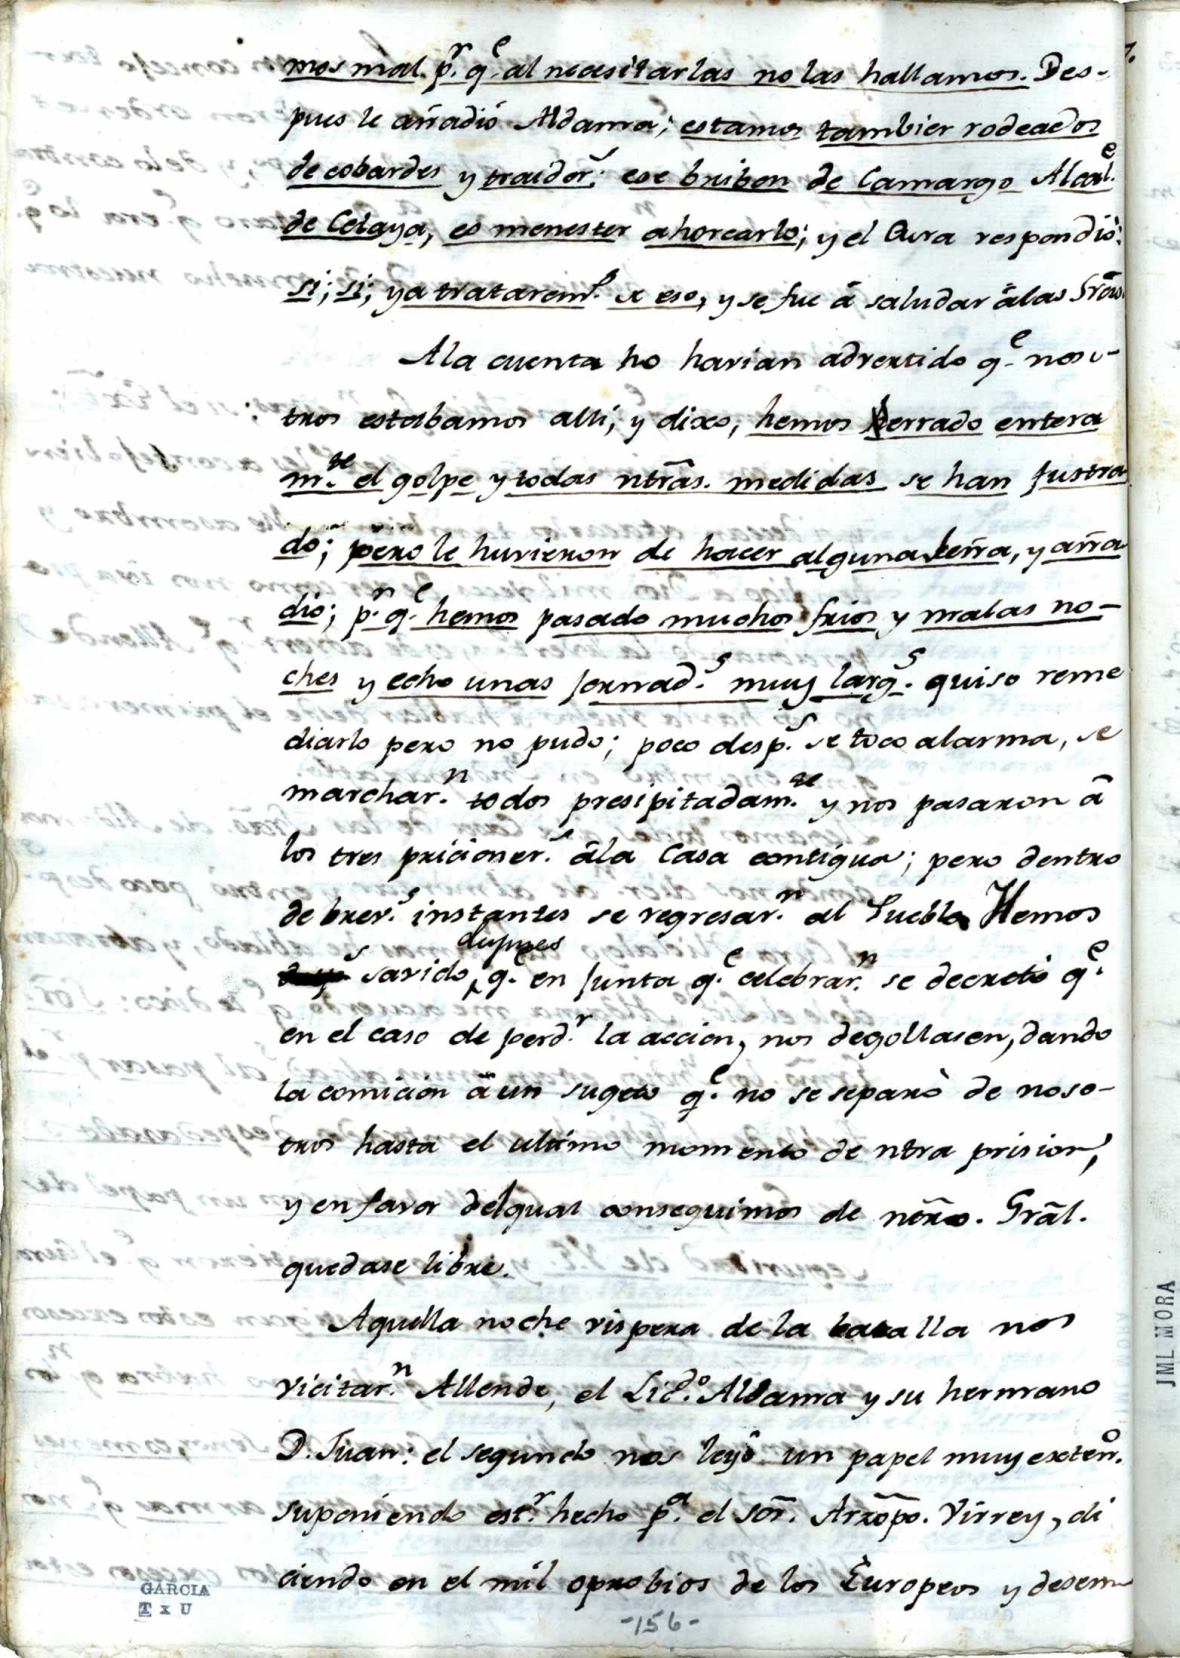 mos mal. p.r q.e al necesitarlas no las hallamos. Des-
pues le añadió Aldama; estamos tambier rodeados
de cobardes y traidor.s; ese bribon de Camargo Alcal.e
de Celaya, es menester ahorcarlo; y el Cura respondió:
si; si; ya tratarem.s de eso, y se fue á saludar álas Srãs.
A la cuenta no havian advertido q.e noso-
tros estabamos alli, y dixo, hemos herrado entera
m.te el golpe y todas ntrãs. medidas se han fustra
do; pero le huvieron de hacer alguna seña, y aña
dio; p.r q.e hemos pasado muchos frios y malas no-
ches y echo unas jornad.s muy larg.s quiso reme
diarlo pero no pudo; poco desp.s se toco alarma, se
marchar.n todos presipitadam.te y nos pasaron á
los tres pricioner.s ála Casa contigua; pero dentro
de brev.s instantes se regresar.n al Pueblo Hemos
dupues
savido, q.e en Junta q.e celebrar.n se decretó q.e
en el caso de perd.r la accion, nos degollasen, dando
la comición á un sugeto q.e no se separó de noso-
tros hasta el ultimo momento de ntra prision,
y en favor del qual conseguimos de ntrõ. Grãl.
quedase libre.
Aquella noche vispera de la batalla nos
vicitar.n Allende, el Licd.o Aldama y su hermano
D. Juan: el segundo nos leyó un papel muy exten.o
suponiendo est.r hecho p.a el Sor. Arzõpo. Virrey, di
ciendo en el mil oprobios de los Europeos y desem
-156-
GARCIA
T x U
JML MORA